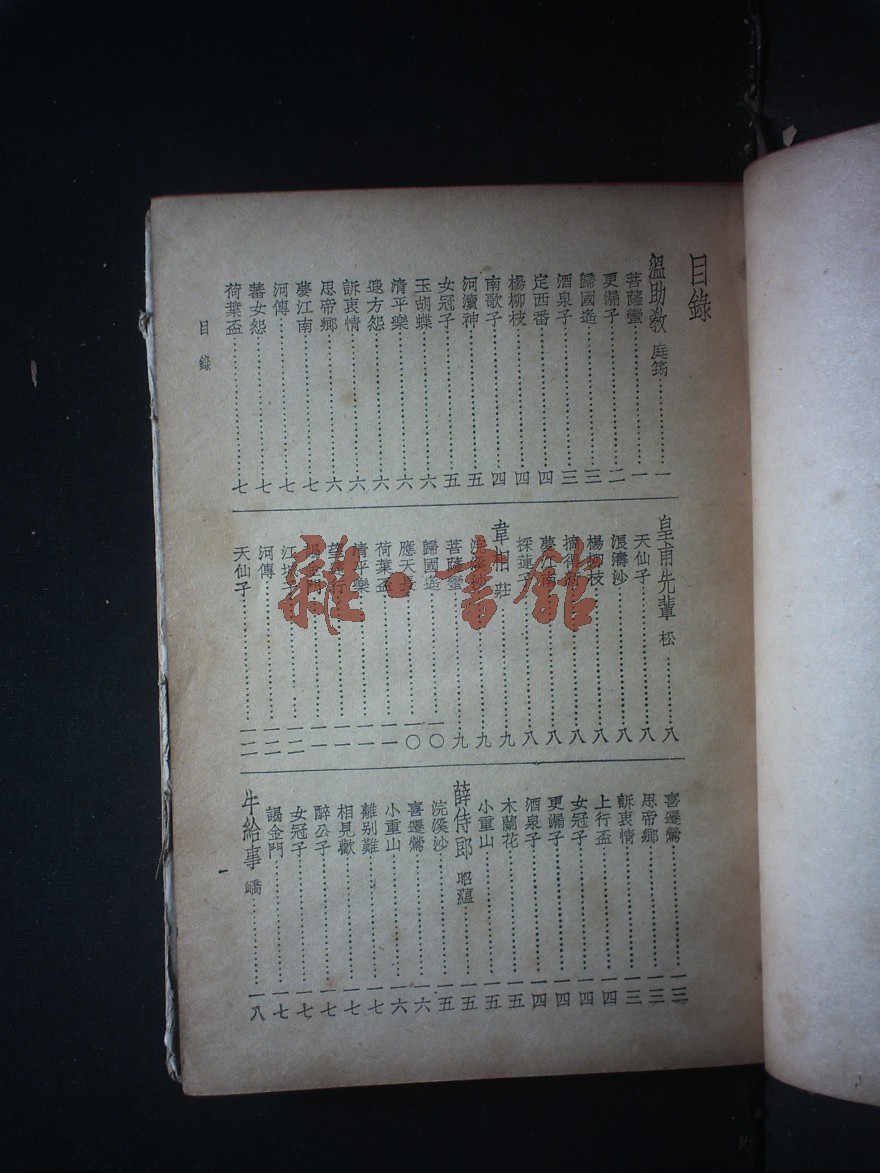 目錄
溫助教 庭筠 一
菩薩蠻 一
更漏子 二
歸國遙 三
酒泉子 三
定西番 四
楊柳枝 四
南歌子 四
河瀆神 五
女冠子 五
玉胡蝶 六
清平樂 六
遐方怨 六
訴衷情 六
思帝鄉 六
夢江南 七
河傳 七
蕃女怨 七
荷葉盃 七
目錄
皇甫先輩 松 八
天仙子 八
浪濤沙 八
楊柳枝 八
摘得新 八
夢江南 八
採蓮子 八
韋相 莊 九
浣溪沙 九
菩薩蠻 九
歸國遙 一〇
應天長 一〇
荷葉盃 一一
清平樂 一一
望遠行 一一
謁金門 一一
江城子 一二
河傳 一二
天仙子 一二
喜遷鶯 一三
思帝鄉 一三
訴衷情 一三
上行盃 一四
女冠子 一四
更漏子 一四
酒泉子 一四
木蘭花 一五
小重山 一五
薛侍郎 昭蘊 一五
浣溪沙 一五
喜遷鶯 一六
小重山 一六
離別難 一七
相見歡 一七
醉公子 一七
女冠子 一七
謁金門 一七
牛給事 嶠 一八
雜·書館